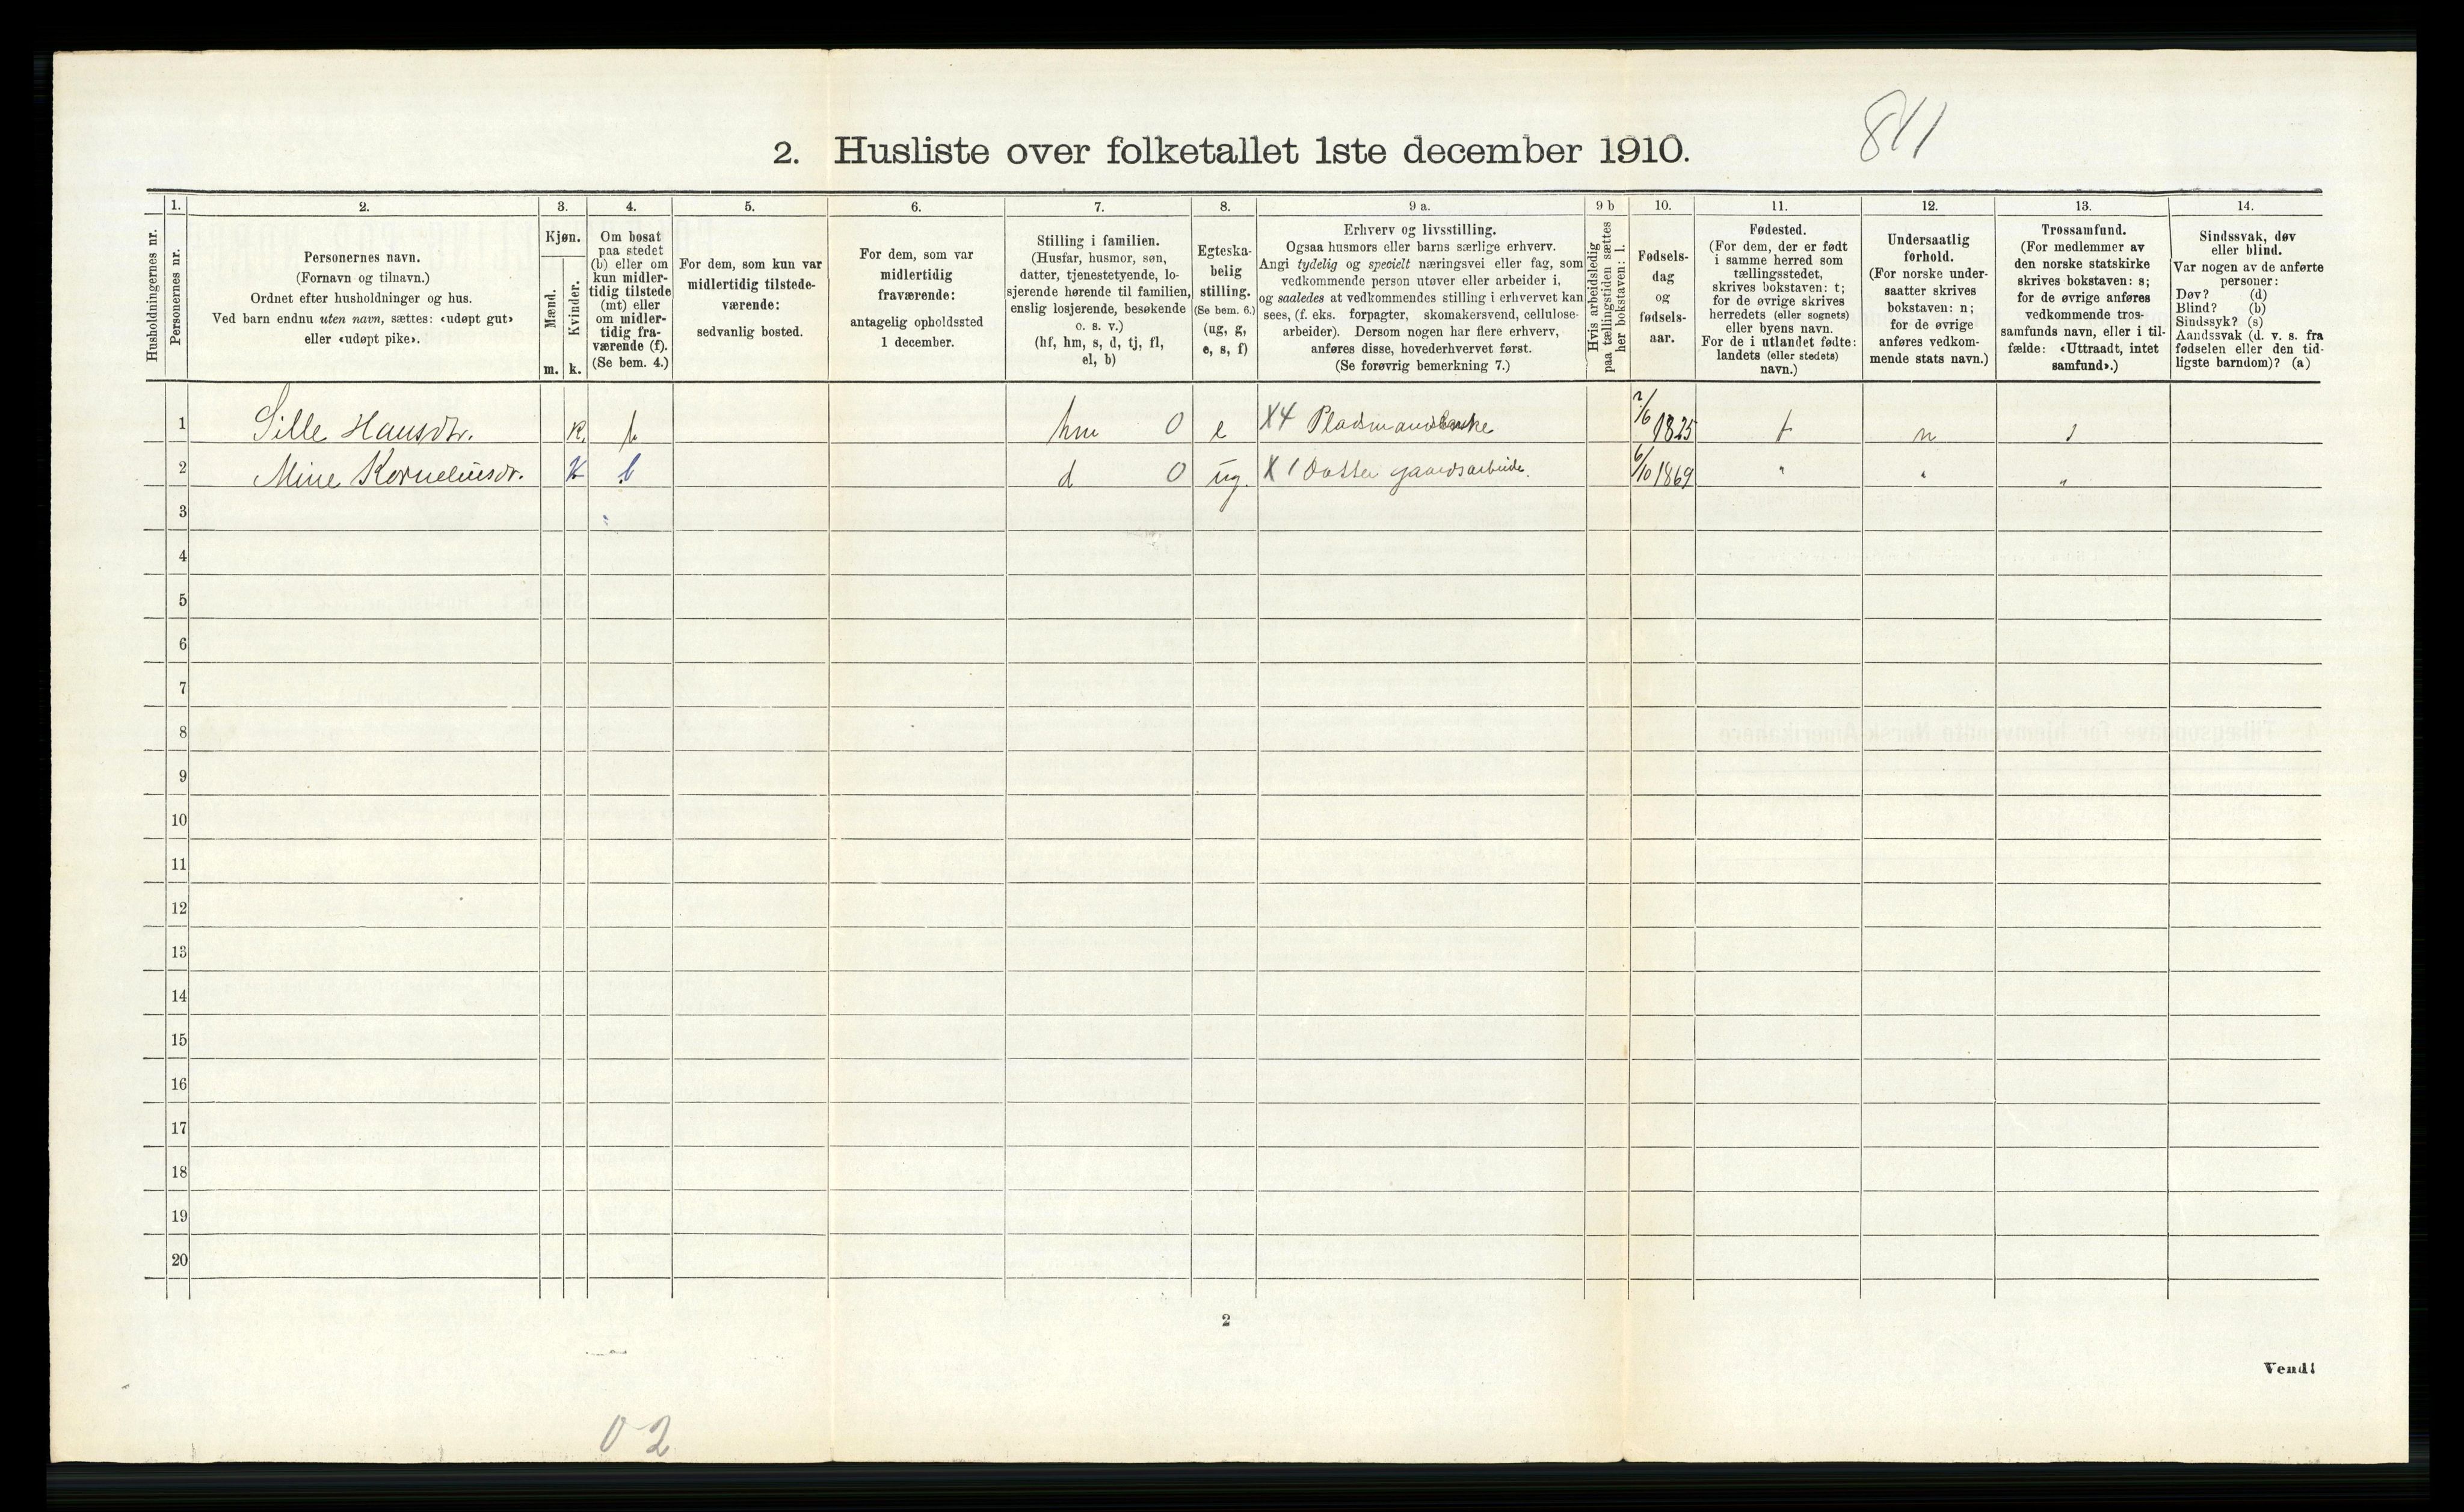 811
2. Husliste over folketallet 1ste december 1910.
Husholdningernes nr.
1.
Personernes nr.
2.
Personernes navn.
(Fornavn og tilnavn.)
Ordnet efter husholdninger og hus.
Ved barn endnu uten navn, sættes: «udøpt gut»
eller «udøpt pike».
3.
Kjøn.
Mænd.
Kvinder.
m. k.
4.
Om bosat
paa stedet
(b) eller om
kun midler-
tidig tilstede
(mt) eller
om midler-
tidig fra-
værende (f).
(Se bem. 4.)
5.
For dem, som kun var
midlertidig tilstede-
værende:
sedvanlig bosted.
6.
For dem, som var
midlertidig
fraværende:
antagelig opholdssted
1 december.
7.
Stilling i familien.
(Husfar, husmor, søn,
datter, tjenestetyende, lo-
sjerende hørende til familien,
enslig losjerende, besøkende
o. s. v.)
(hf, hm, s, d, tj, fl,
el, b)
8.
Egteska-
belig
stilling.
(Se bem. 6.)
(ug, g,
e, s, f)
9 a.
Erhverv og livsstilling.
Ogsaa husmors eller barns særlige erhverv.
Angi tydelig og specielt næringsvei eller fag, som
vedkommende person utøver eller arbeider i,
og saaledes at vedkommendes stilling i erhvervet kan
sees, (f. eks. forpagter, skomakersvend, cellulose-
arbeider). Dersom nogen har flere erhverv,
anføres disse, hovederhvervet først.
(Se forøvrig bemerkning 7.)
9 b
Hvis arbeidsledig
paa tællingstiden sættes
her bokstaven: l.
10.
Fødsels-
dag
og
fødsels-
aar.
11.
Fødested.
(For dem, der er født
i samme herred som
tællingsstedet,
skrives bokstaven: t;
for de øvrige skrives
herredets (eller sognets)
eller byens navn.
For de i utlandet fødte:
landets (eller stedets)
navn.)
12.
Undersaatlig
forhold.
(For norske under-
saatter skrives
bokstaven: n;
for de øvrige
anføres vedkom-
mende stats navn.)
13.
Trossamfund.
(For medlemmer av
den norske statskirke
skrives bokstaven: s;
for de øvrige anføres
vedkommende tros-
samfunds navn, eller i til-
fælde: «Uttraadt, intet
samfund».)
14.
Sindssvak, døv
eller blind.
Var nogen av de anførte
personer:
Døv? (d)
Blind? (b)
Sindssyk? (s)
Aandssvak (d. v. s. fra
fødselen eller den tid-
ligste barndom)? (a)
1 Sille Hansdtr. K. b hm 0 e X4 Pladsmandsenke 1825 t n s
2 Mine Korneliusdr. K b d 0 ug. X1 Datter gaardsarbeide. 6/10 1869 " " "
3
4
5
6
7
8
9
10
11
12
13
14
15
16
17
18
19
20
2
Vend!
0 2